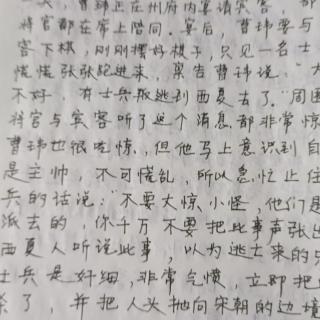 曹玮正在州府内宴请宾客，部
将官都在席上陪同。宴后，曹玮要与
客下棋，刚刚摆好棋子，只见一名士
慌慌张张跑进来，禀告曹玮说："大
不好，有士兵叛逃到西夏去了。"周围
将官与宾客听了这个消息，都非常惊
曹玮也很吃惊，但他马上意识到自
是主帅，不可慌乱，所以急忙止住
兵的话说："不要大惊小怪，他们是
派去的，你千万不要把此事声张出
西夏人听说此事，以为逃亡来的宋
士兵是奸细，非常气愤，立即把
杀了，并把人头抛向宋朝的边境